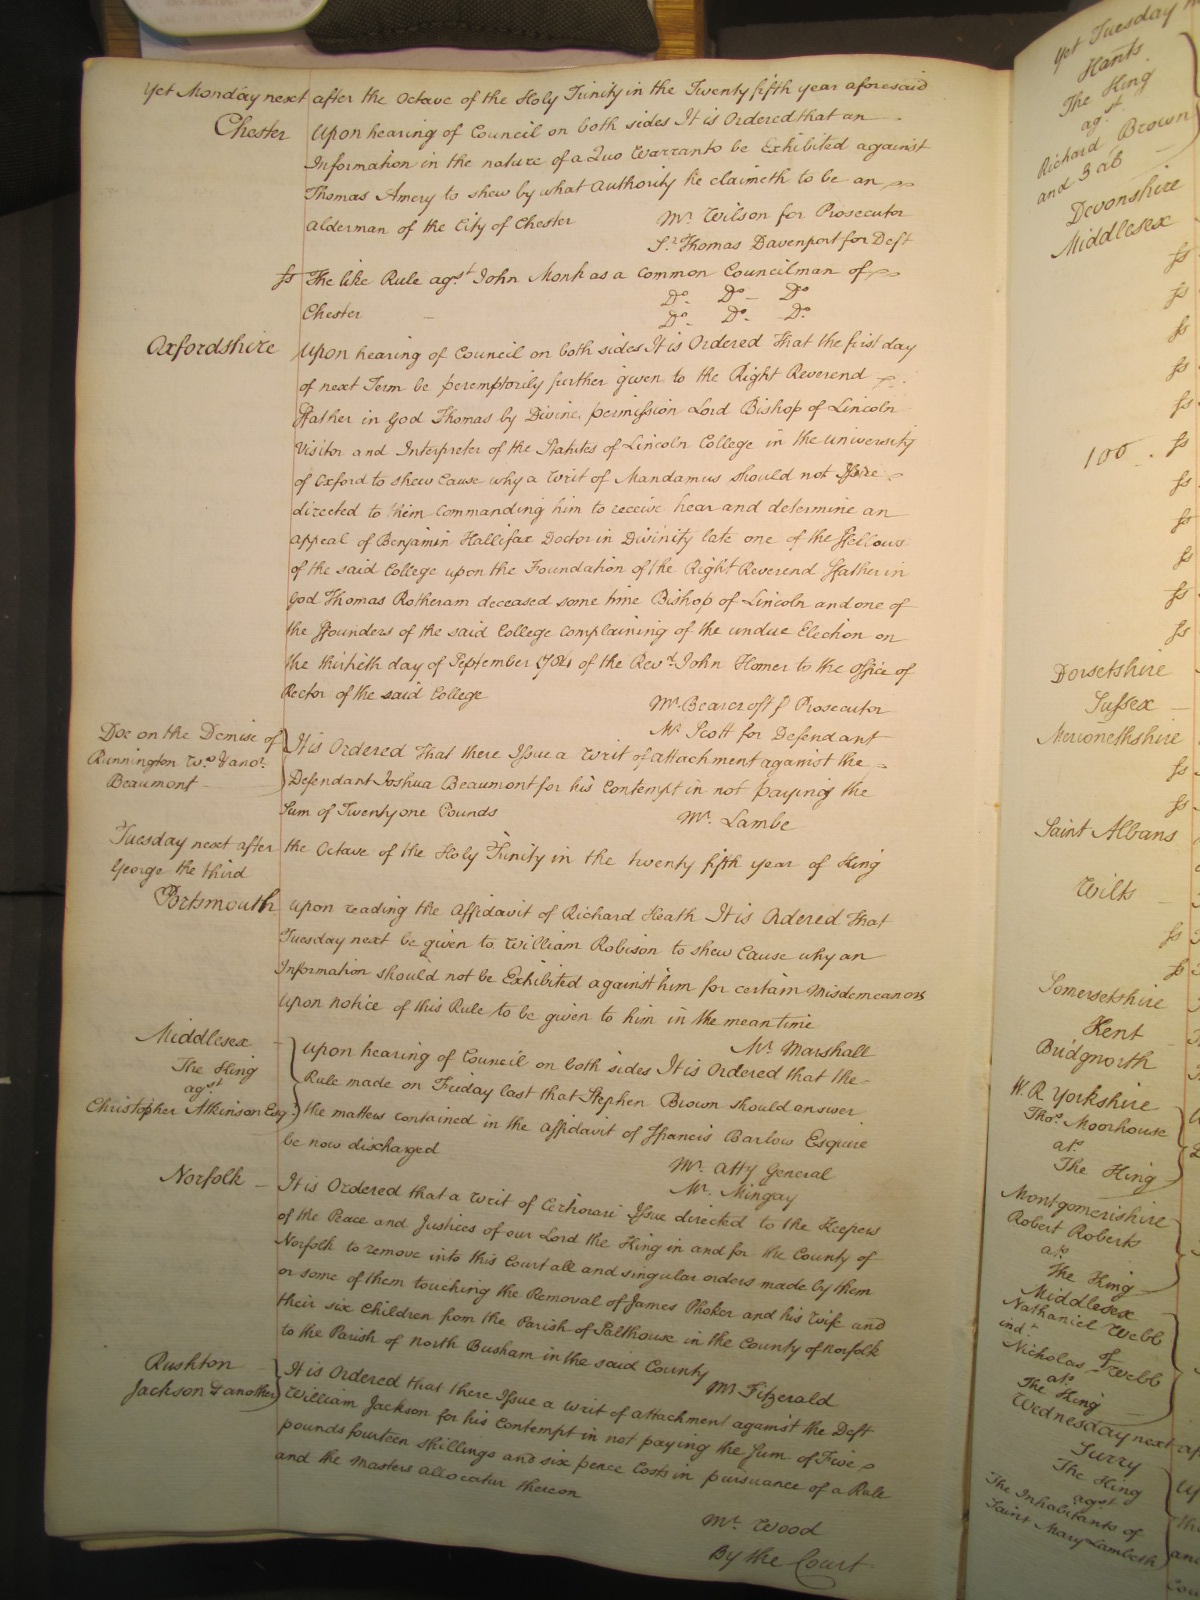 Yet Monday next after the Octave of the Holy Trinity in the Twenty fifth year aforesaid
Chester Upon hearing of Council on both sides It is Ordered that an
Information in the nature of a Quo Warranto be Exhibited against
Thomas Amery to shew by what Authority he claimeth to be an
Alderman of the City of Chester Mr. Wilson for Prosecutor
Sr. Thomas Davenport for Deft
ss The like Rule agst. John Monk as a Common Councilman of
Chester Do. Do Do
Do. Do. Do.
Oxfordshire Upon hearing of Council on both sides It is Ordered That the first day
of next Term be peremptorily further given to the Right Reverend
ffather in God Thomas by Divine permission Lord Bishop of Lincoln
Visitor and Interpreter of the Statutes of Lincoln College in the university
of Oxford to shew Cause why a Writ of Mandamus should not Issue
directed to them Commanding him to receive hear and determine an
appeal of Benjamin Hallifax Doctor in Divinity late one of the ffellows
of the said College upon the Foundation of the Right Reverend ffather in
God Thomas Rotheram deceased some time Bishop of Lincoln and one of
the ffounders of the said College complaining of the undue Election on
the thirtieth day of September 1784 of the Revd. John Horner to the office of
Rector of the said College
Mr. Bearcroft f Prosecutor
Mr Scott for Defendant
Doe on the Demise of
Rinnington Wo. & anor.
Beaumont
It is Ordered That there Issue a Writ of attachment against the
Defendant Joshua Beaumont for his Contempt in not paying the
Sum of Twenty one Pounds Mr. Lambe
Tuesday next after the Octave of the Holy Trinity in the twenty fifth year of King
George the third
Portsmouth upon reading the Affidavit of Richard Heath It is Ordered That
Tuesday next be given to William Robison to shew Cause why an
Information should not be Exhibited against him for certain Misdemeanors
upon notice of this Rule to be given to him in the mean time
Mr. Marshall
Middlesex
The King
agst
Christopher Atkinson Esq.
upon hearing of Council on both sides It is Ordered that the
Rule made on Friday last that Stephen Brown should answer
the matters contained in the Affidavit of ffrancis Barlow Esquire
be now discharged
Mr. Atty General
Mr. Mingay
Norfolk It is Ordered that a Writ of Certiorari Issue directed to the Keepers
of the Peace and Justices of our Lord the King in and for the County of
Norfolk to remove into this Court all and singular orders made by them
or some of them touching the Removal of James Phoker and his Wife and
their six Children from the Parish of Salthouse in the County of Norfolk
to the Parish of North Busham in the said County
Mr Fitzgerald
Rushton
Jackson & another
It is Ordered that there Issue a Writ of attachment against the Deft
William Jackson for his Contempt in not paying the Sum of Five
pounds fourteen shillings and six pence Costs in pursuance of a Rule
and the Masters allocatur thereon
Mr. Wood
By the Court
Yet Tuesday n
Hants
The King
agst
Richard Brown
and 3 ab
Devonshire
Middlesex
ss
ss
ss
ss
ss
100 . ss
ss
ss
ss
ss
ss
Dorsetshire
Sussex
Merionethshire
ss
ss
Saint Albans
Wilts
ss
ss
Somersetshire
Kent
Bridgnorth
W. R. Yorkshire
Thos. Moorhouse
ats.
The King
Montgomerishire
Robert Roberts
ats
The King
Middlesex
Nathaniel Webb
indt of
Nicholas Webb
ats
The King
Wednesday next af
Surry
The King
agst
The Inhabitants of
Saint Mary Lambeth